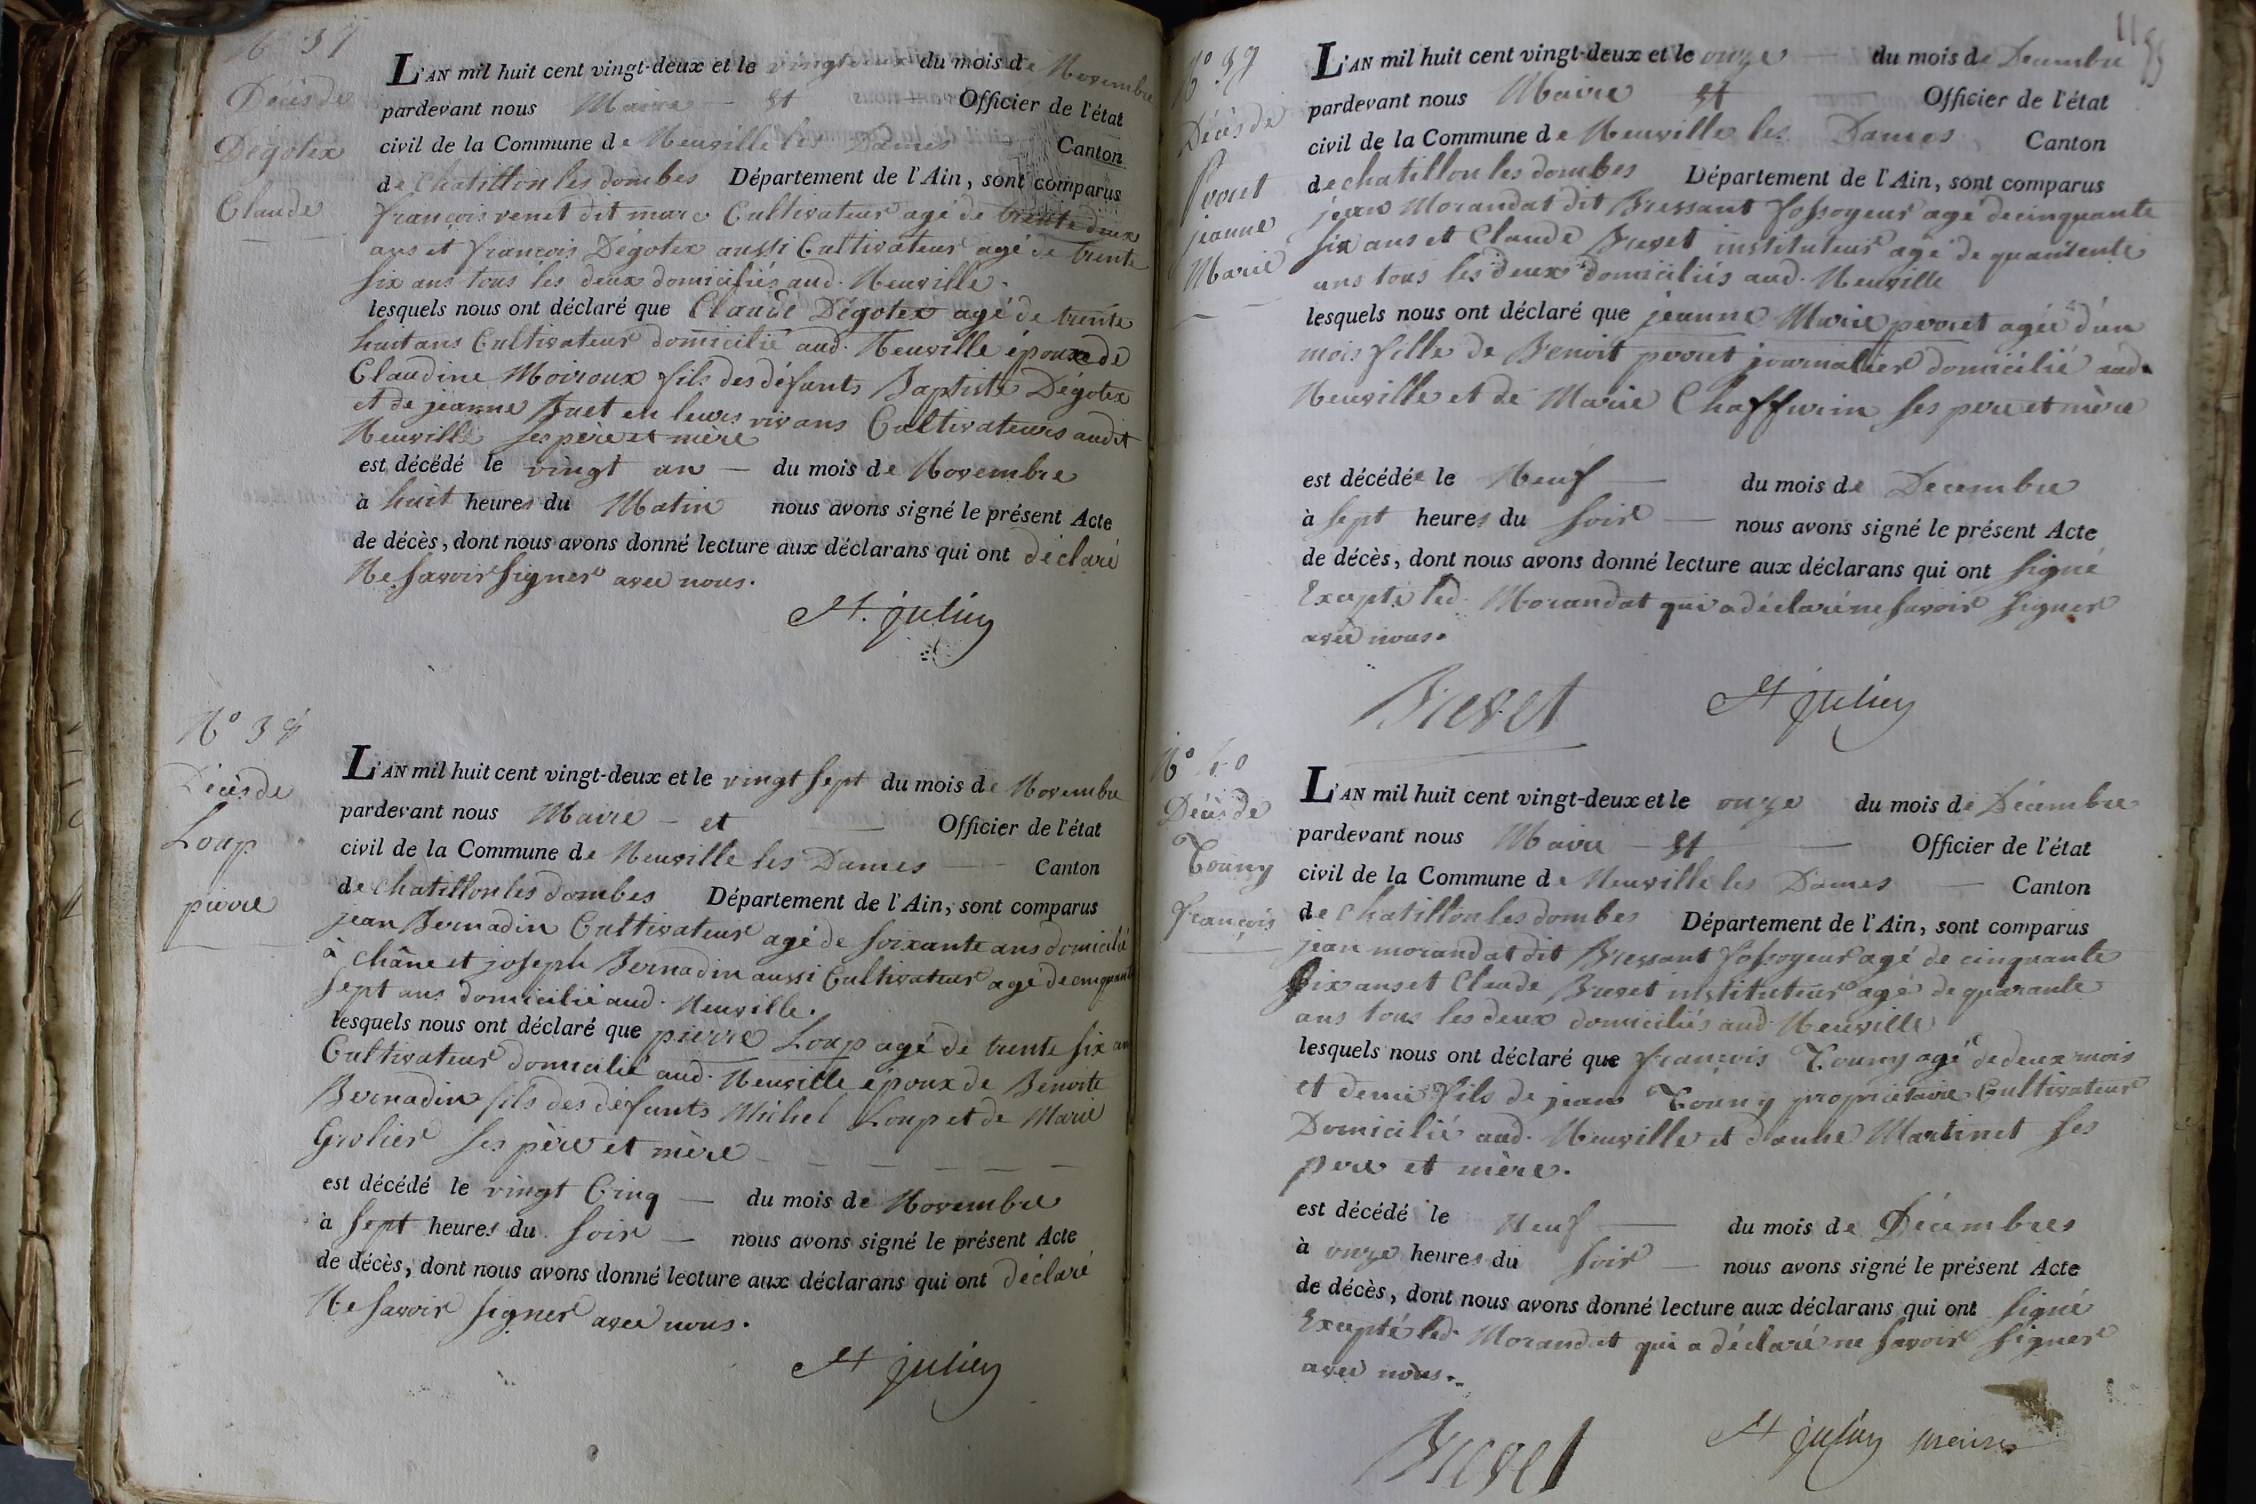 N° 37
Décès de
Dégotex
Claude
L'AN mil huit cent vingt-deux et le vingt deux du mois de Novembre
pardevant nous Maire – et Officier de l'état
civil de la Commune de Neuville les Dames – Canton
de Chatillon les dombes Département de l'Ain, sont comparus
françois venet dit marc Cultivateur agé de trente deux
ans et françois Dégotex aussi Cultivateur agé de trente
six ans tous les deux domiciliés aud. Neuville.
lesquels nous ont déclaré que Claude Dégotex agé de trente
huit ans Cultivateur domicilié aud. Neuville époux de
Claudine Moiroux fils des défunts Baptiste Dégotex
et de jeanne Buet en leurs vivans Cultivateurs audit
Neuville ses père et mère
est décédé le vingt un – du mois de Novembre
à huit heures du Matin nous avons signé le présent Acte
de décès, dont nous avons donné lecture aux déclarans qui ont déclaré
Ne savoir signer avec nous.
St. julien
N° 38
Décès de
Loup
pierre
L'AN mil huit cent vingt-deux et le vingt sept du mois de Novembre
pardevant nous Maire – et – Officier de l'état
civil de la Commune de Neuville les Dames – Canton
de Chatillon les dombes Département de l'Ain, sont comparus
jean Bernadin Cultivateur agé de soixante ans domicilié
à Châne et joseph Bernadin aussi Cultivateur agé de cinquante
sept ans domicilié aud. Neuville.
lesquels nous ont déclaré que pierre Loup agé de trente six ans
Cultivateur domicilié aud. Neuville époux de Benoite
Bernadin fils des défunts Michel Loup et de Marie
Grolier ses père et mère – – – – –
est décédé le vingt Cinq – du mois de Novembre
à sept heures du soir – nous avons signé le présent Acte
de décès, dont nous avons donné lecture aux déclarans qui ont déclaré
Ne savoir signer avec nous.
St julien
N° 39
Décès de
Pvoret
jeanne
Marie
L'AN mil huit cent vingt-deux et le onze – du mois de Decembre
pardevant nous Maire et – Officier de l'état
civil de la Commune de Neuville les Dames Canton
de chatillon les dombes Département de l'Ain, sont comparus
jean Morandat dit Bressant fossoyeur agé de cinquante
six ans et Claude Brevet instituteur agé de quarente
ans tous les deux domiciliés aud. Neuville
lesquels nous ont déclaré que jeanne Marie pvoret agée d'un
mois fille de Benoit pvoret journalier domicilié aud.
Neuville et de Marie Chaffurin ses pere et mère
est décédée le Neuf – du mois de Decembre
à sept heures du soir – nous avons signé le présent Acte
de décès, dont nous avons donné lecture aux déclarans qui ont signé
Excepté led. Morandat qui a déclaré ne savoir signer
avec nous.
Brevet St julien
N° 40
Décès de
Touny
françois
L'AN mil huit cent vingt-deux et le onze du mois de Décembre
pardevant nous Maire – et – Officier de l'état
civil de la Commune de Neuville les Dames – Canton
de Chatillon les dombes Département de l'Ain, sont comparus
jean morandat dit Bressant fossoyeur agé de cinquante
six ans et Claude Brevet instituteur agé de quarante
ans tous les deux domiciliés aud. Neuville
lesquels nous ont déclaré que françois Touny agé de deux mois
et demi fils de jean Touny propriétaire Cultivateur
Domicilié aud. Neuville et d'anne Martinet ses
pere et mère.
est décédé le Neuf – du mois de Décembres
à onze heures du soir – nous avons signé le présent Acte
de décès, dont nous avons donné lecture aux déclarans qui ont signé
Excepté led. Morandat qui a déclaré ne savoir signer
avec nous.
Brevet St julien maire